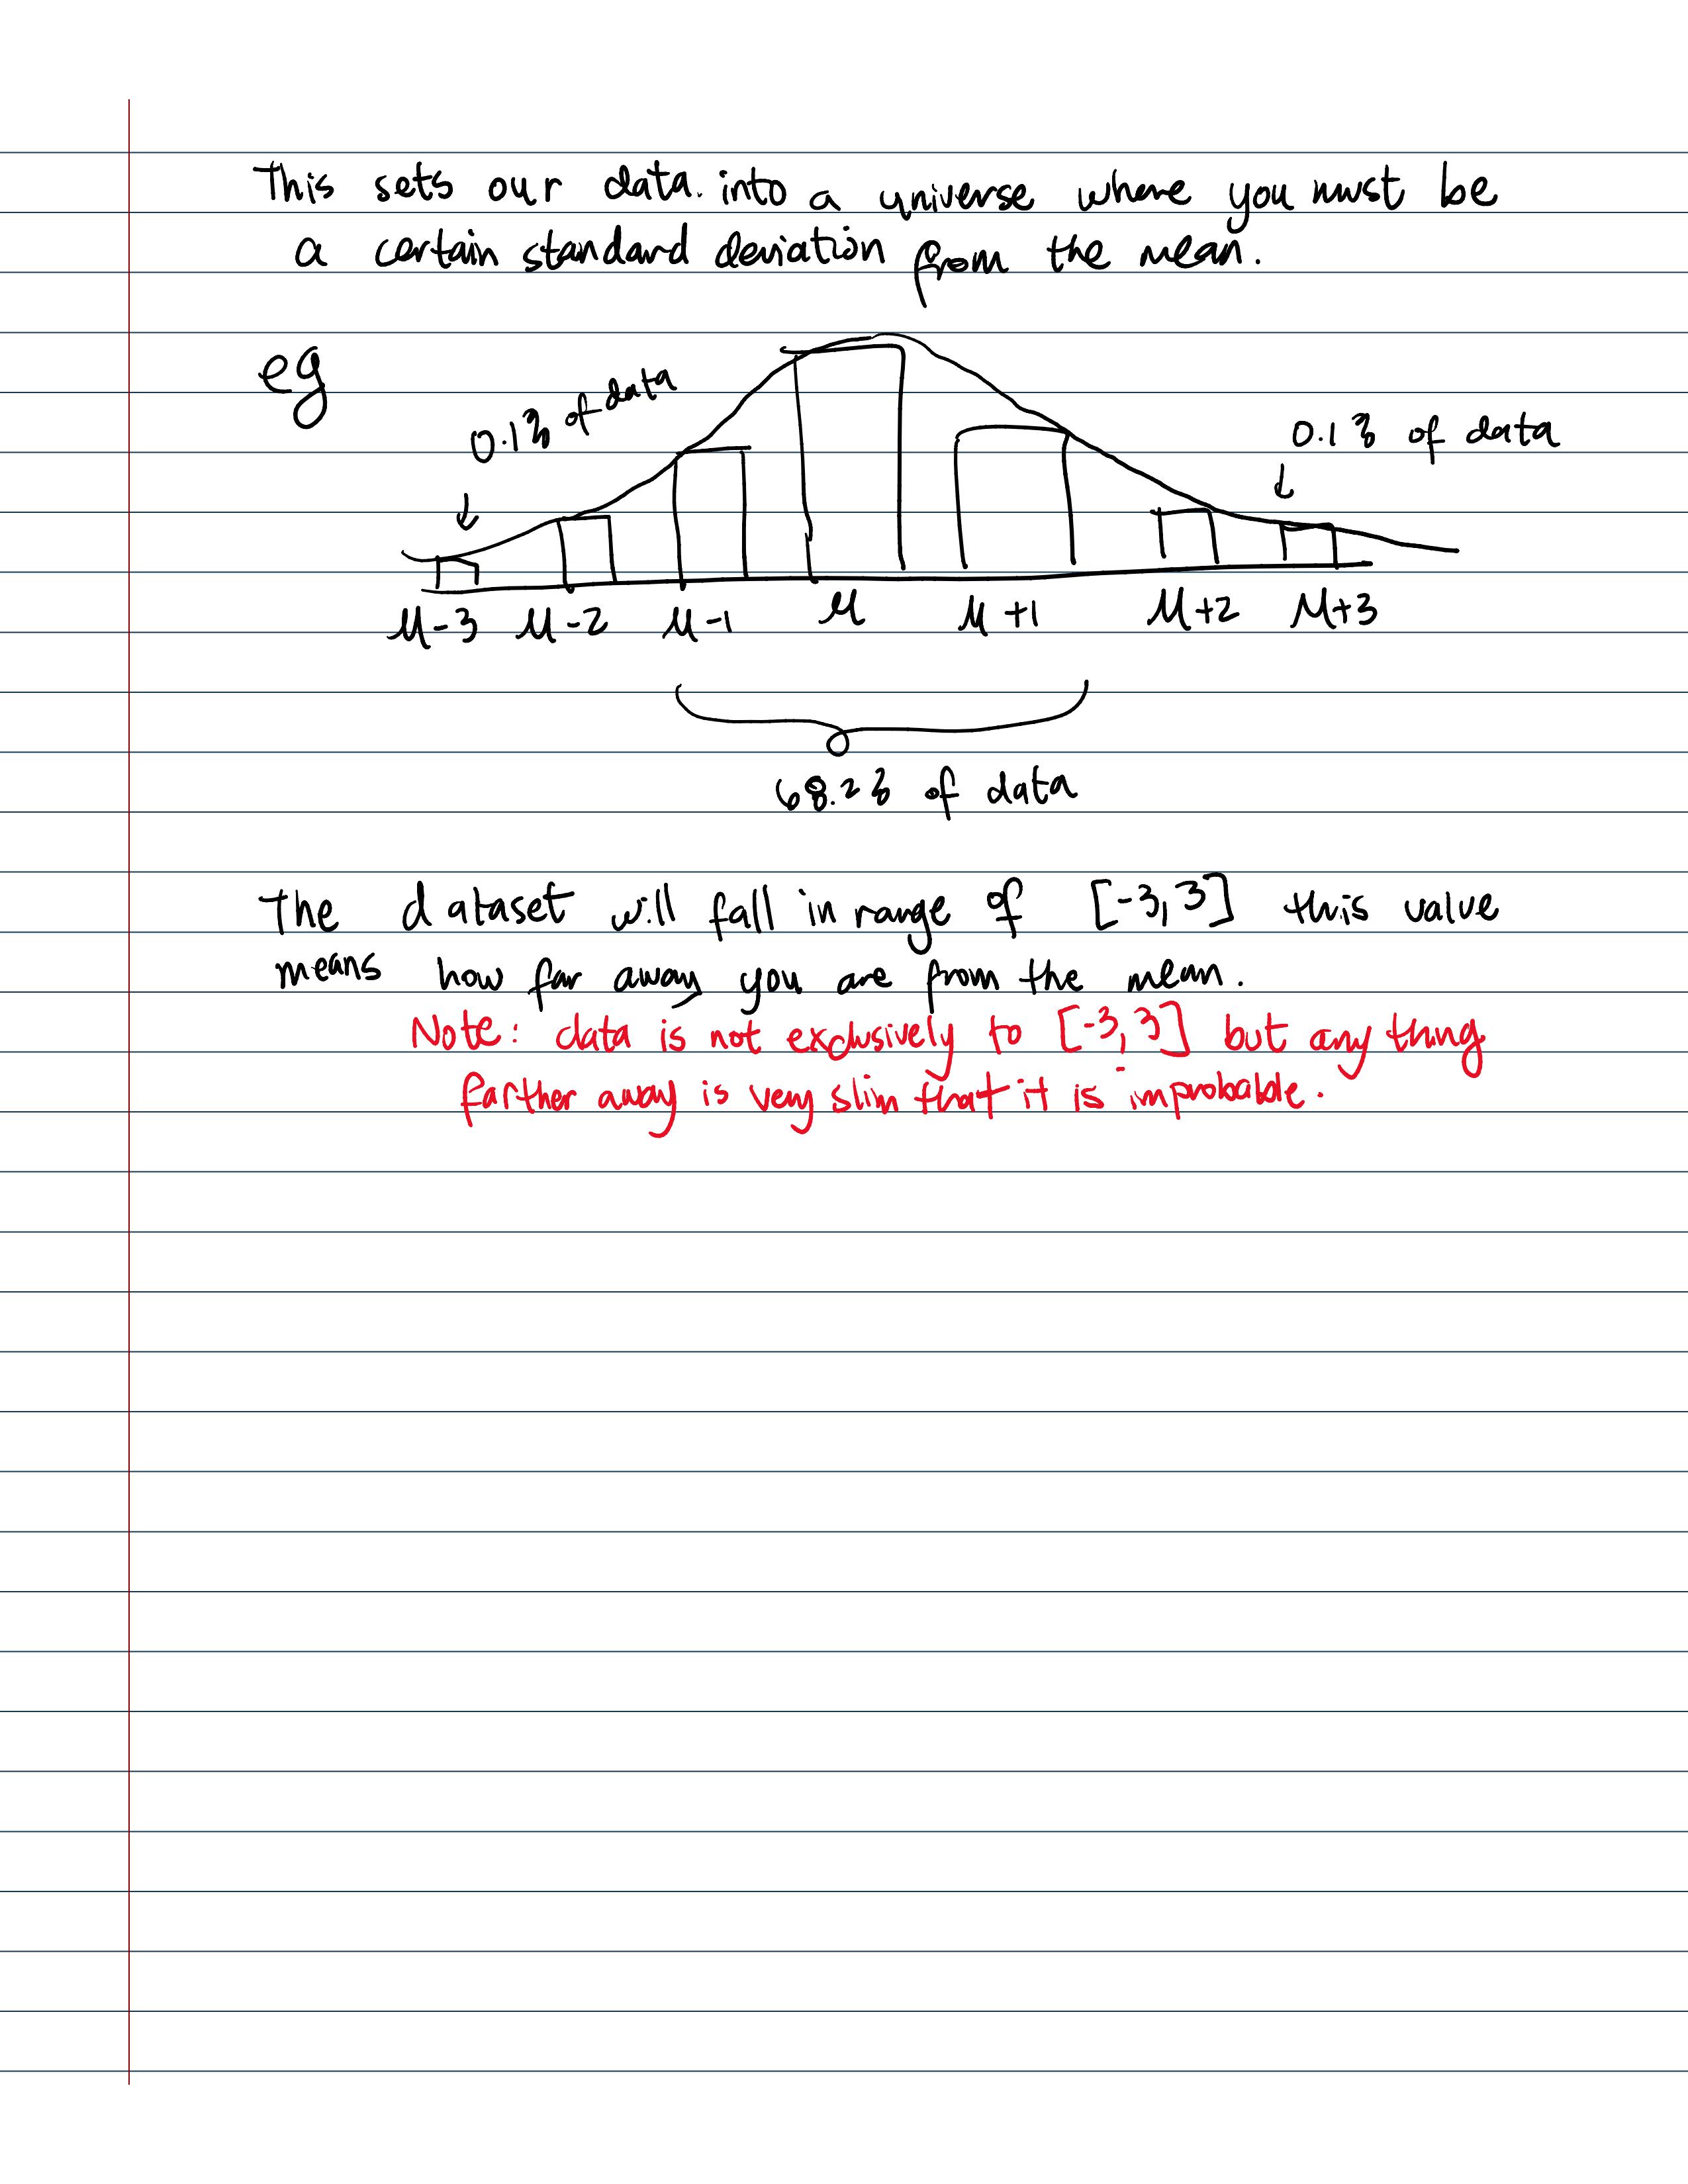 This sets our data into a universe where you must be
a certain standard deviation from the mean.
eg
0.1% of data
0.1% of data
μ-3 μ-2 μ-1 μ μ+1 μ+2 μ+3
68.2% of data
The dataset will fall in range of [-3,3] this value
means how far away you are from the mean.
Note: data is not exclusively to [-3,3] but any thing
farther away is very slim that it is improbable.